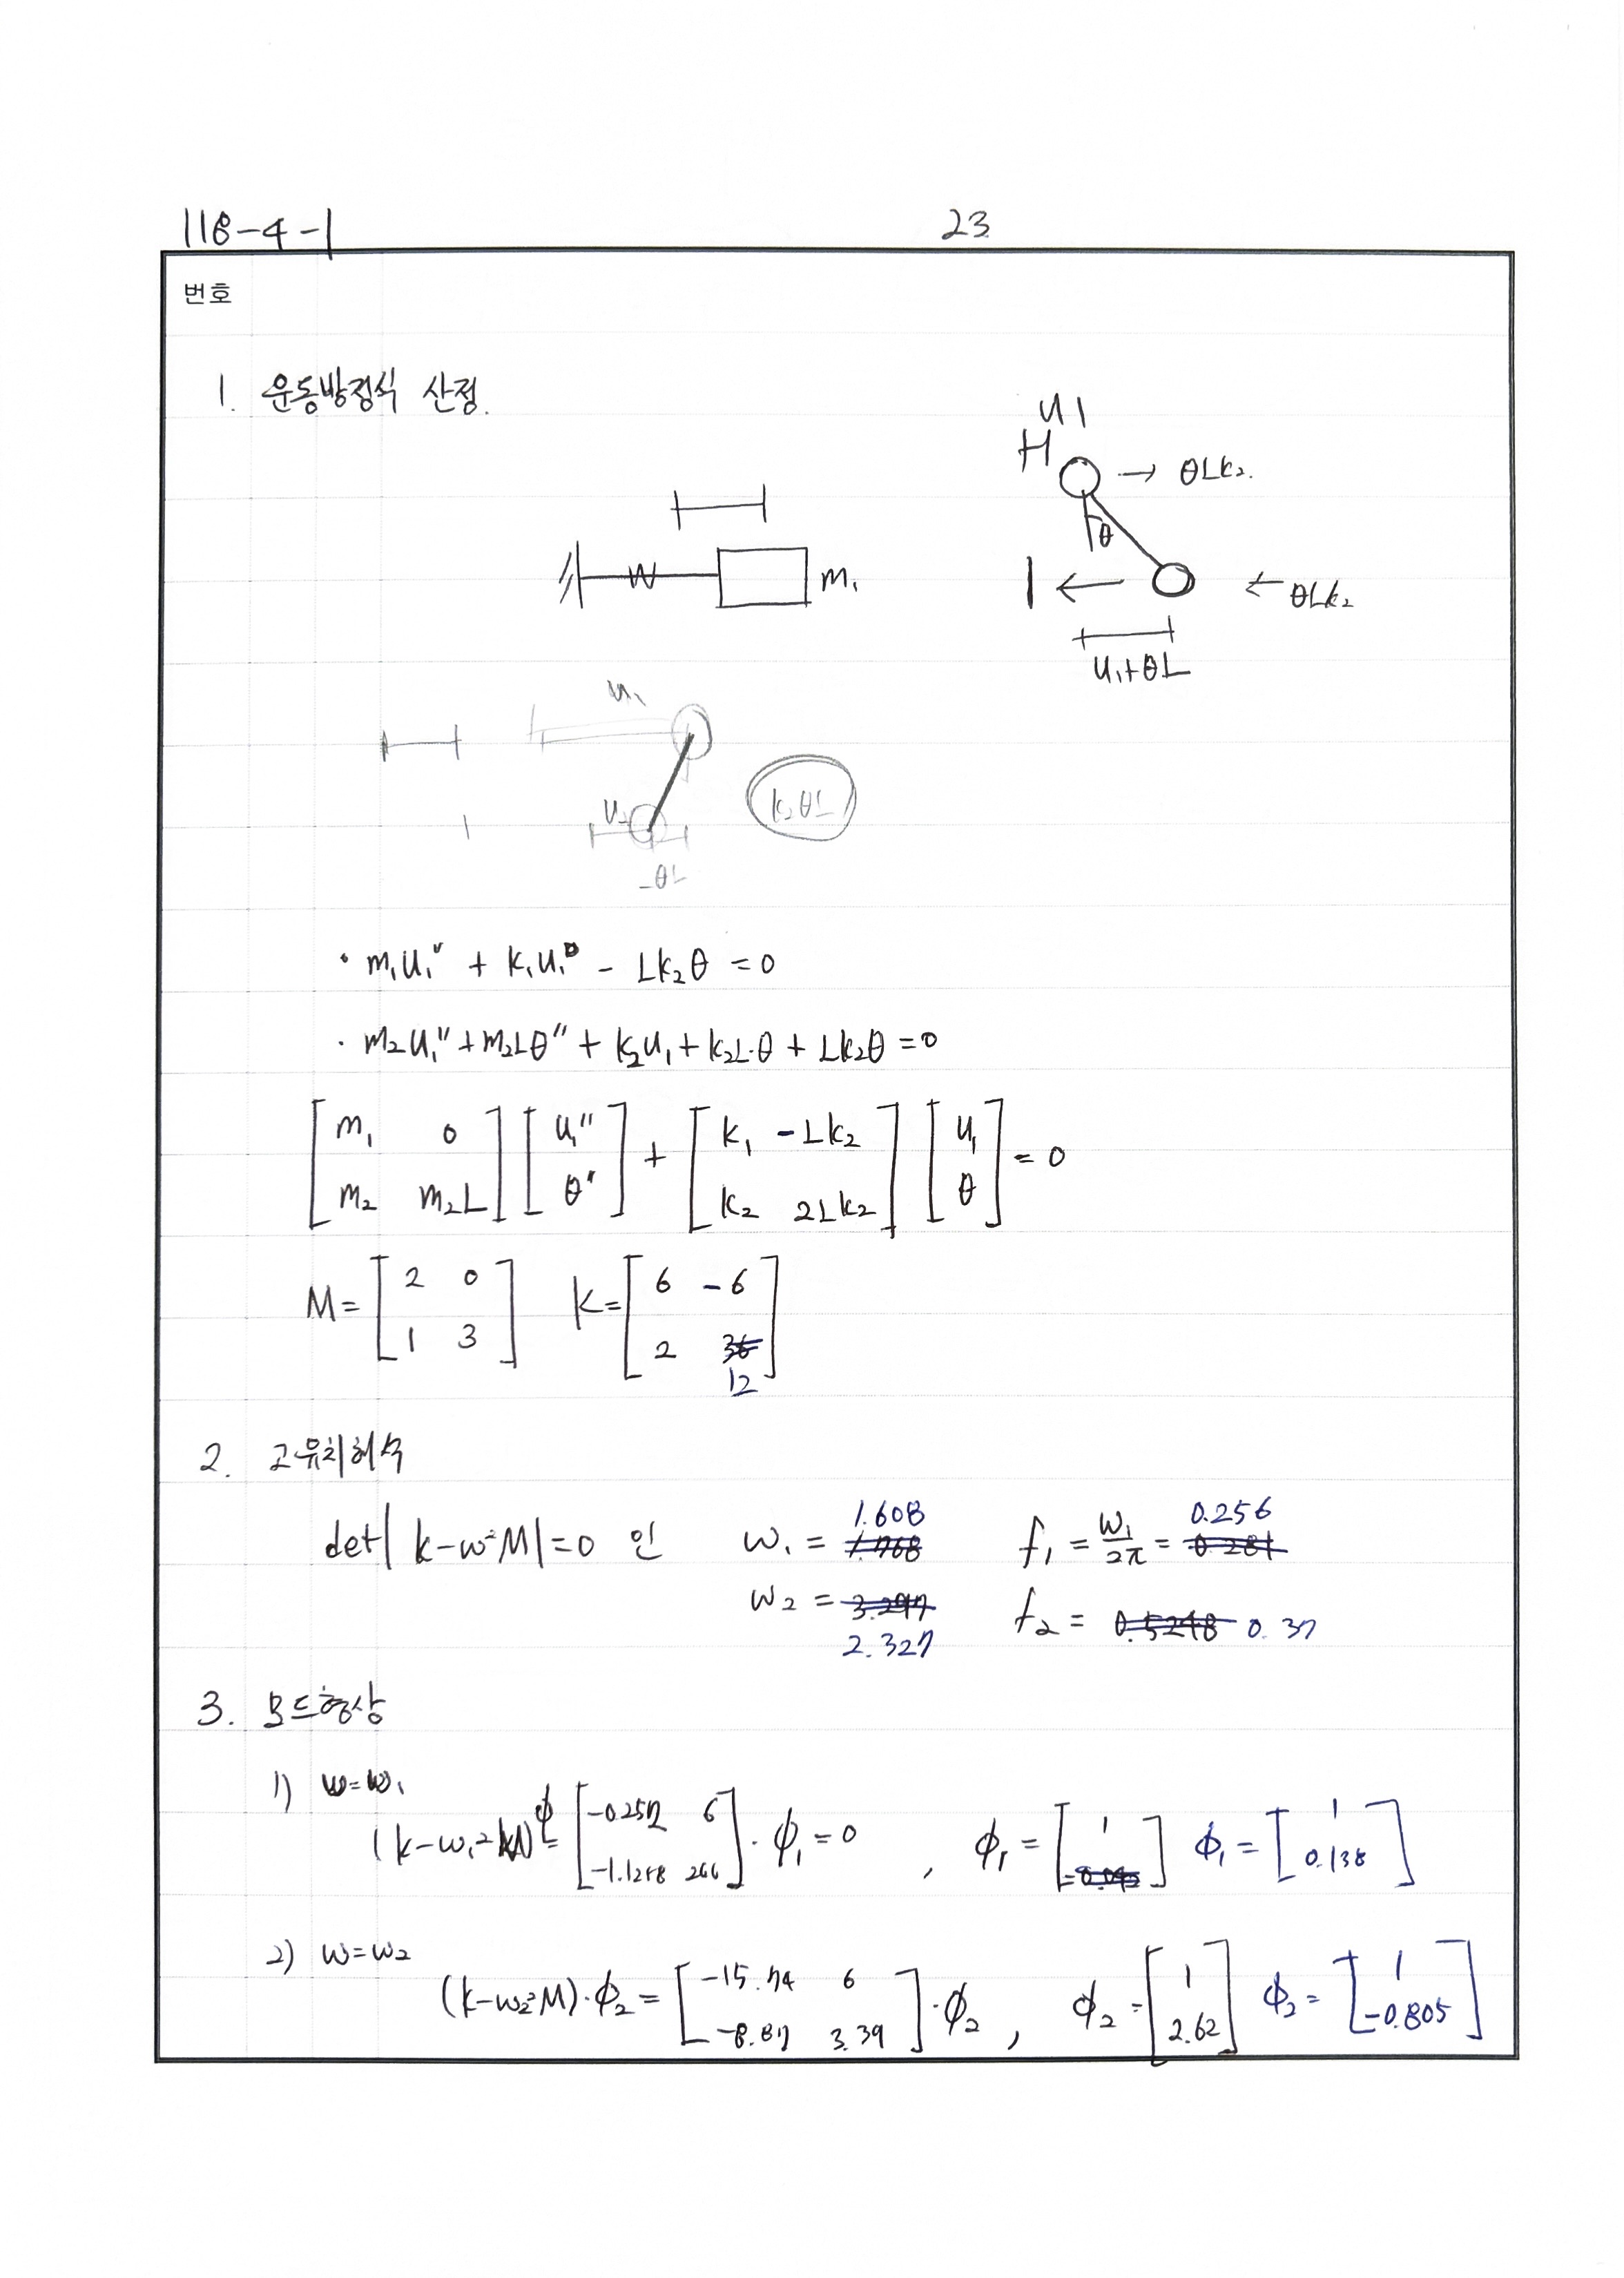 118-4-1 23
번호
1. 운동방정식 산정.
u1
H → θLk₂.
θ
m₁
← ← θLk₂
u₁+θL
u₁
k₂θL
u₂
-θL
· m₁u₁'' + k₁u₁ - Lk₂θ = 0
· m₂u₁'' + m₂Lθ'' + k₂u₁ + k₂L·θ + Lk₂θ = 0
[m₁ 0; m₂ m₂L] [u₁''; θ''] + [k₁ -Lk₂; k₂ 2Lk₂] [u₁; θ] = 0
M = [2 0; 1 3] K = [6 -6; 2 36 12]
2. 고유치해석
det| k-ω²M | = 0 인 ω₁ = 1.768 1.608 f₁ = ω₁/2π = 0.281 0.256
ω₂ = 3.297 2.327 f₂ = 0.5248 0.37
3. 모드형상
1) ω=ω₁
(k-ω₁²M)ϕ = [-0.252 6; -1.1258 266] · ϕ₁ = 0 , ϕ₁ = [1; ] ϕ₁ = [1; 0.138]
2) ω=ω₂
(k-ω₂²M)·ϕ₂ = [-15.74 6; -8.87 3.39] · ϕ₂ , ϕ₂ = [1; 2.62] ϕ₂ = [1; -0.805]